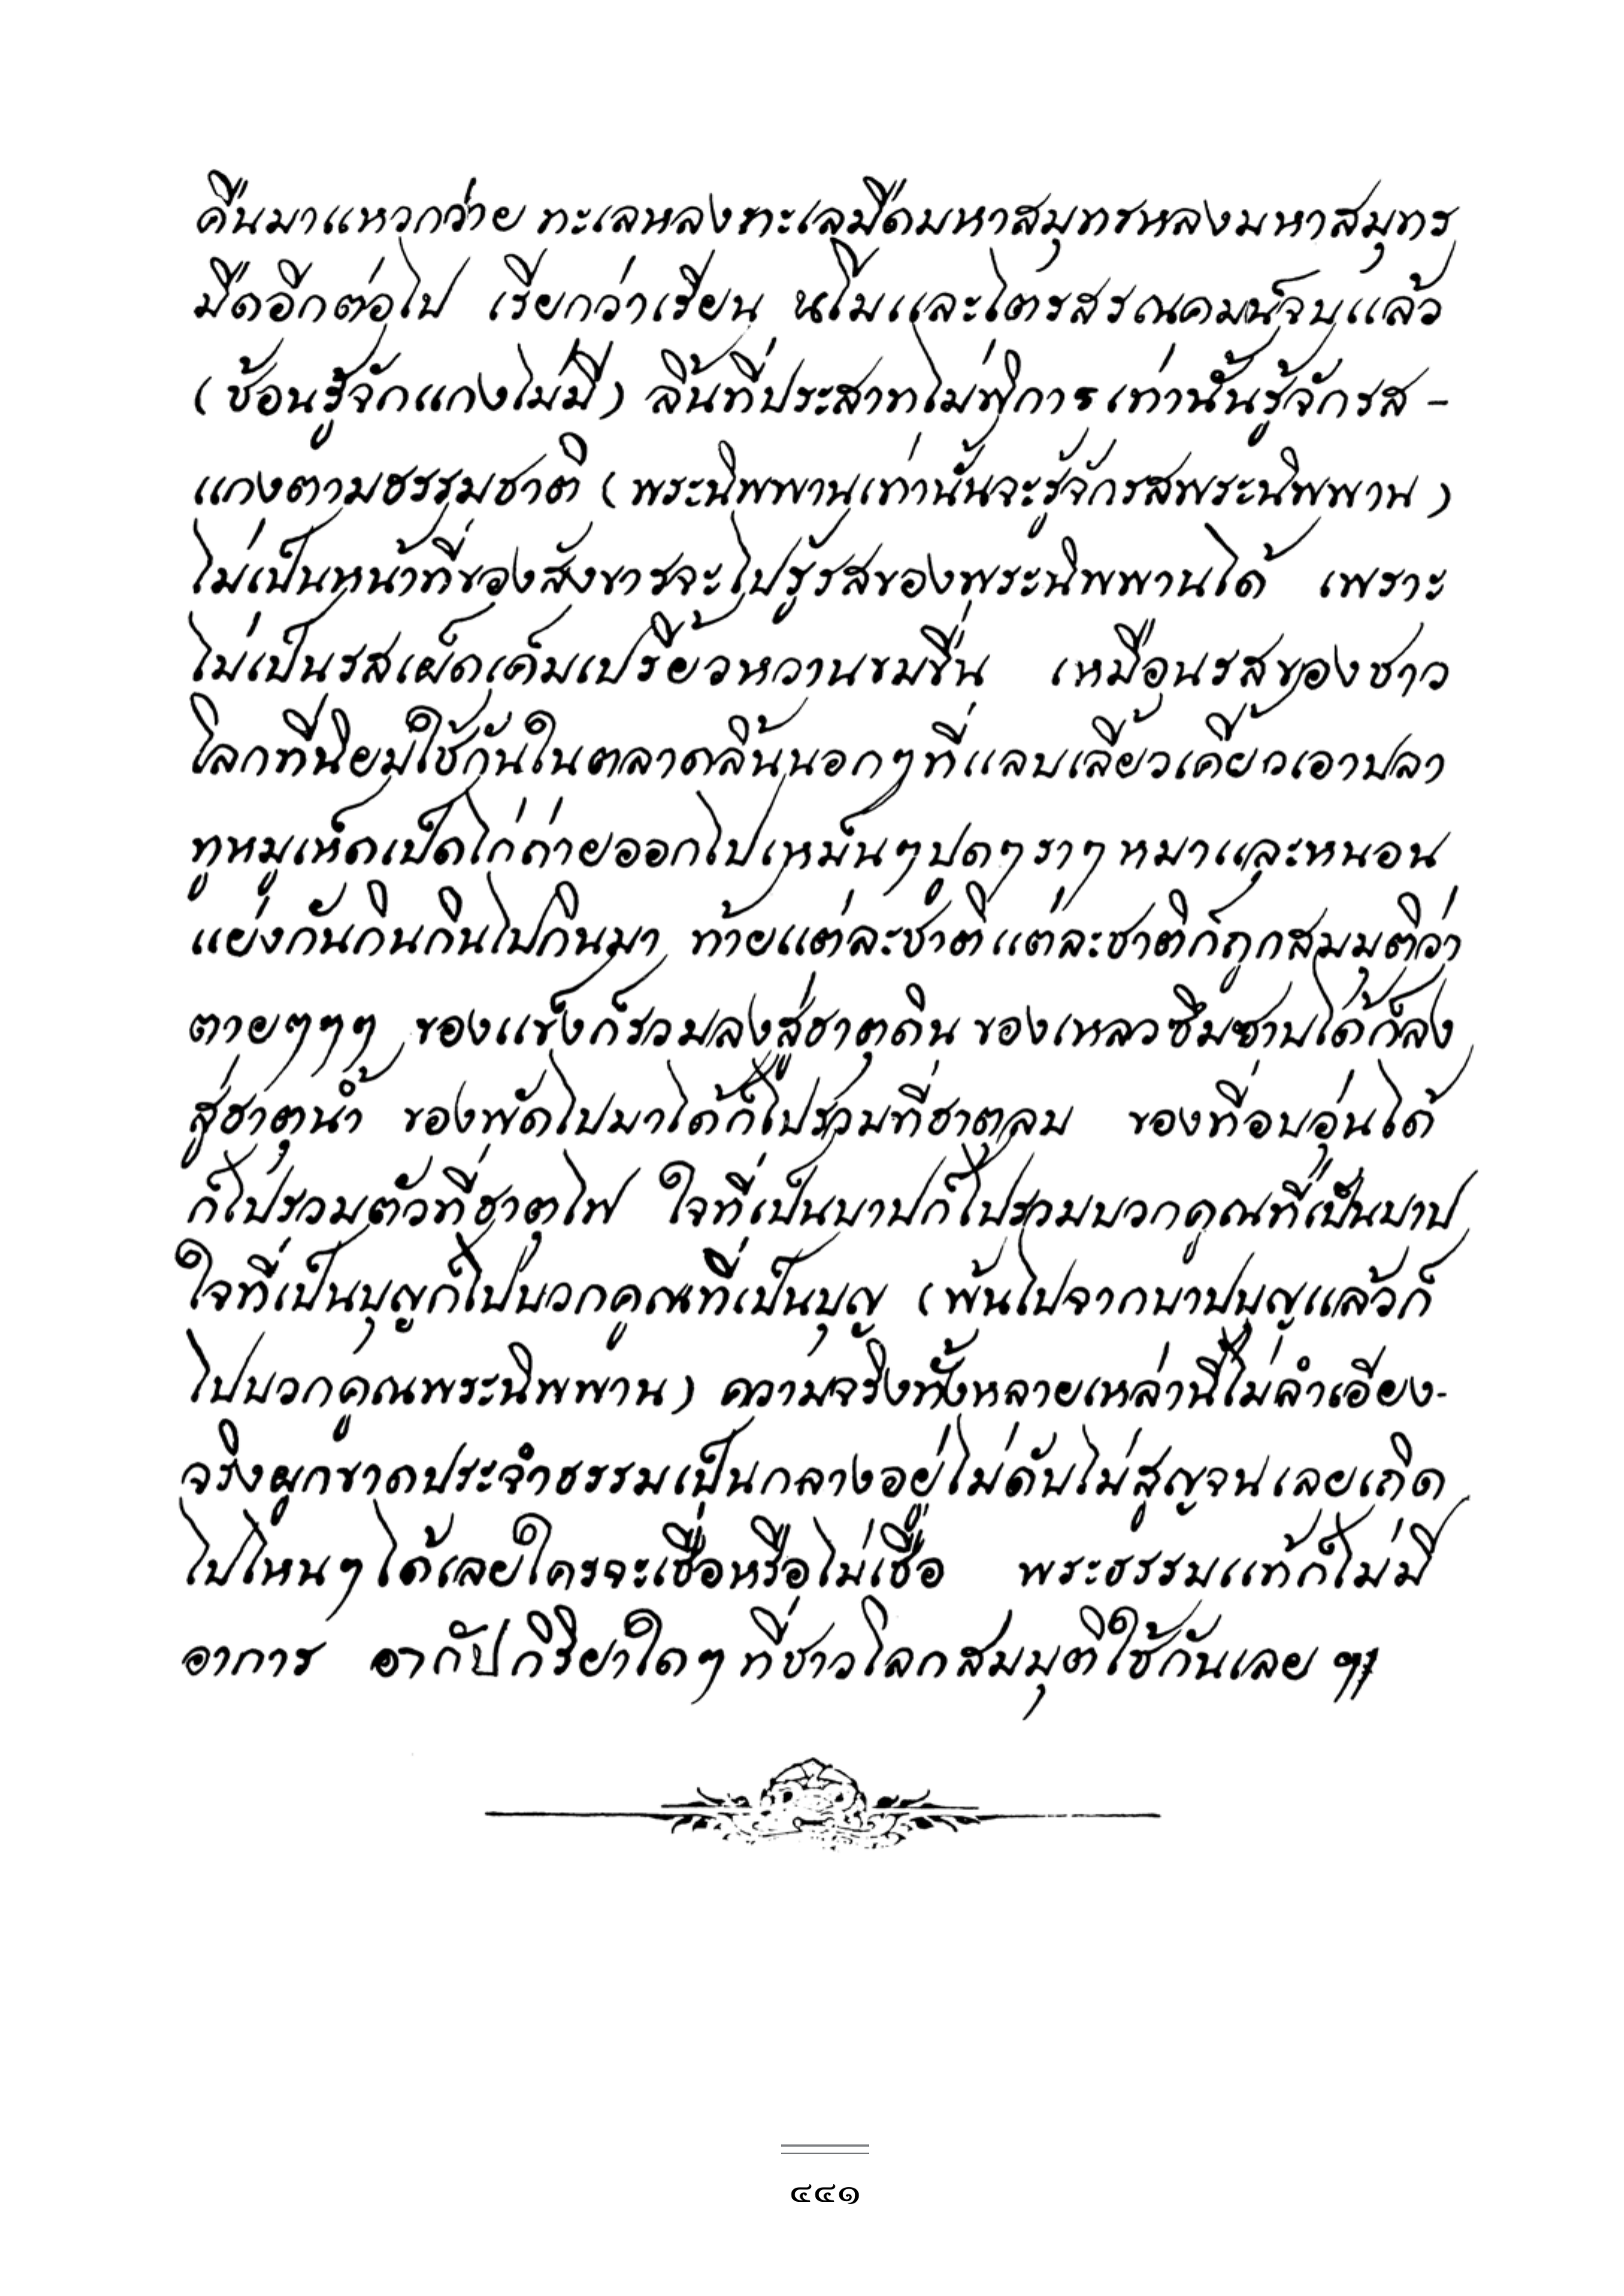 คืนมาแหวกว่าย ทะเลหลงทะเลมืดมหาสมุทรหลงมหาสมุทร
มืดอีกต่อไป เรียกว่าเรียน นโมและไตรสรณคมน์จบแล้ว
(ช้อนรู้จักแกงไม่มี) ลิ้นที่ประสาทไม่พิการเท่านั้นรู้จักรส -
แกงตามธรรมชาติ (พระนิพพานเท่านั้นจะรู้จักรสพระนิพพาน)
ไม่เป็นหน้าที่ของสังขารจะไปรู้รสของพระนิพพานได้ เพราะ
ไม่เป็นรสเผ็ดเค็มเปรี้ยวหวานขมขื่น เหมือนรสของชาว
โลกที่นิยมใช้กันในตลาดลิ้นนอกๆที่แลบเลี้ยวเคี้ยวเอาปลา
ทูหมูเห็ดเป็ดไก่ถ่ายออกไปเหม็นๆปูดๆราๆ หมาและหนอน
แย่งกันกินกินไปกินมา ท้ายแต่ละชาติแต่ละชาติก็ถูกสมมุติว่า
ตายๆๆๆ ของแข็งก็รวมลงสู่ธาตุดิน ของเหลวซึมซาบได้ก็ลง
สู่ธาตุน้ำ ของพัดไปมาได้ก็ไปรวมที่ธาตุลม ของที่อบอุ่นได้
ก็ไปรวมตัวที่ธาตุไฟ ใจที่เป็นบาปก็ไปรวมบวกคูณที่เป็นบาป
ใจที่เป็นบุญก็ไปบวกคูณที่เป็นบุญ (พ้นไปจากบาปบุญแล้วก็
ไปบวกคูณพระนิพพาน) ความจริงทั้งหลายเหล่านี้ไม่ลำเอียง-
จริงผูกขาดประจำธรรมเป็นกลางอยู่ไม่ดับไม่สูญจนเลยเถิด
ไปไหนๆได้เลยใครจะเชื่อหรือไม่เชื่อ พระธรรมแท้ก็ไม่มี
อาการ อากัปกิริยาใดๆ ที่ชาวโลกสมมุติใช้กันเลย ฯ
๔๔๑